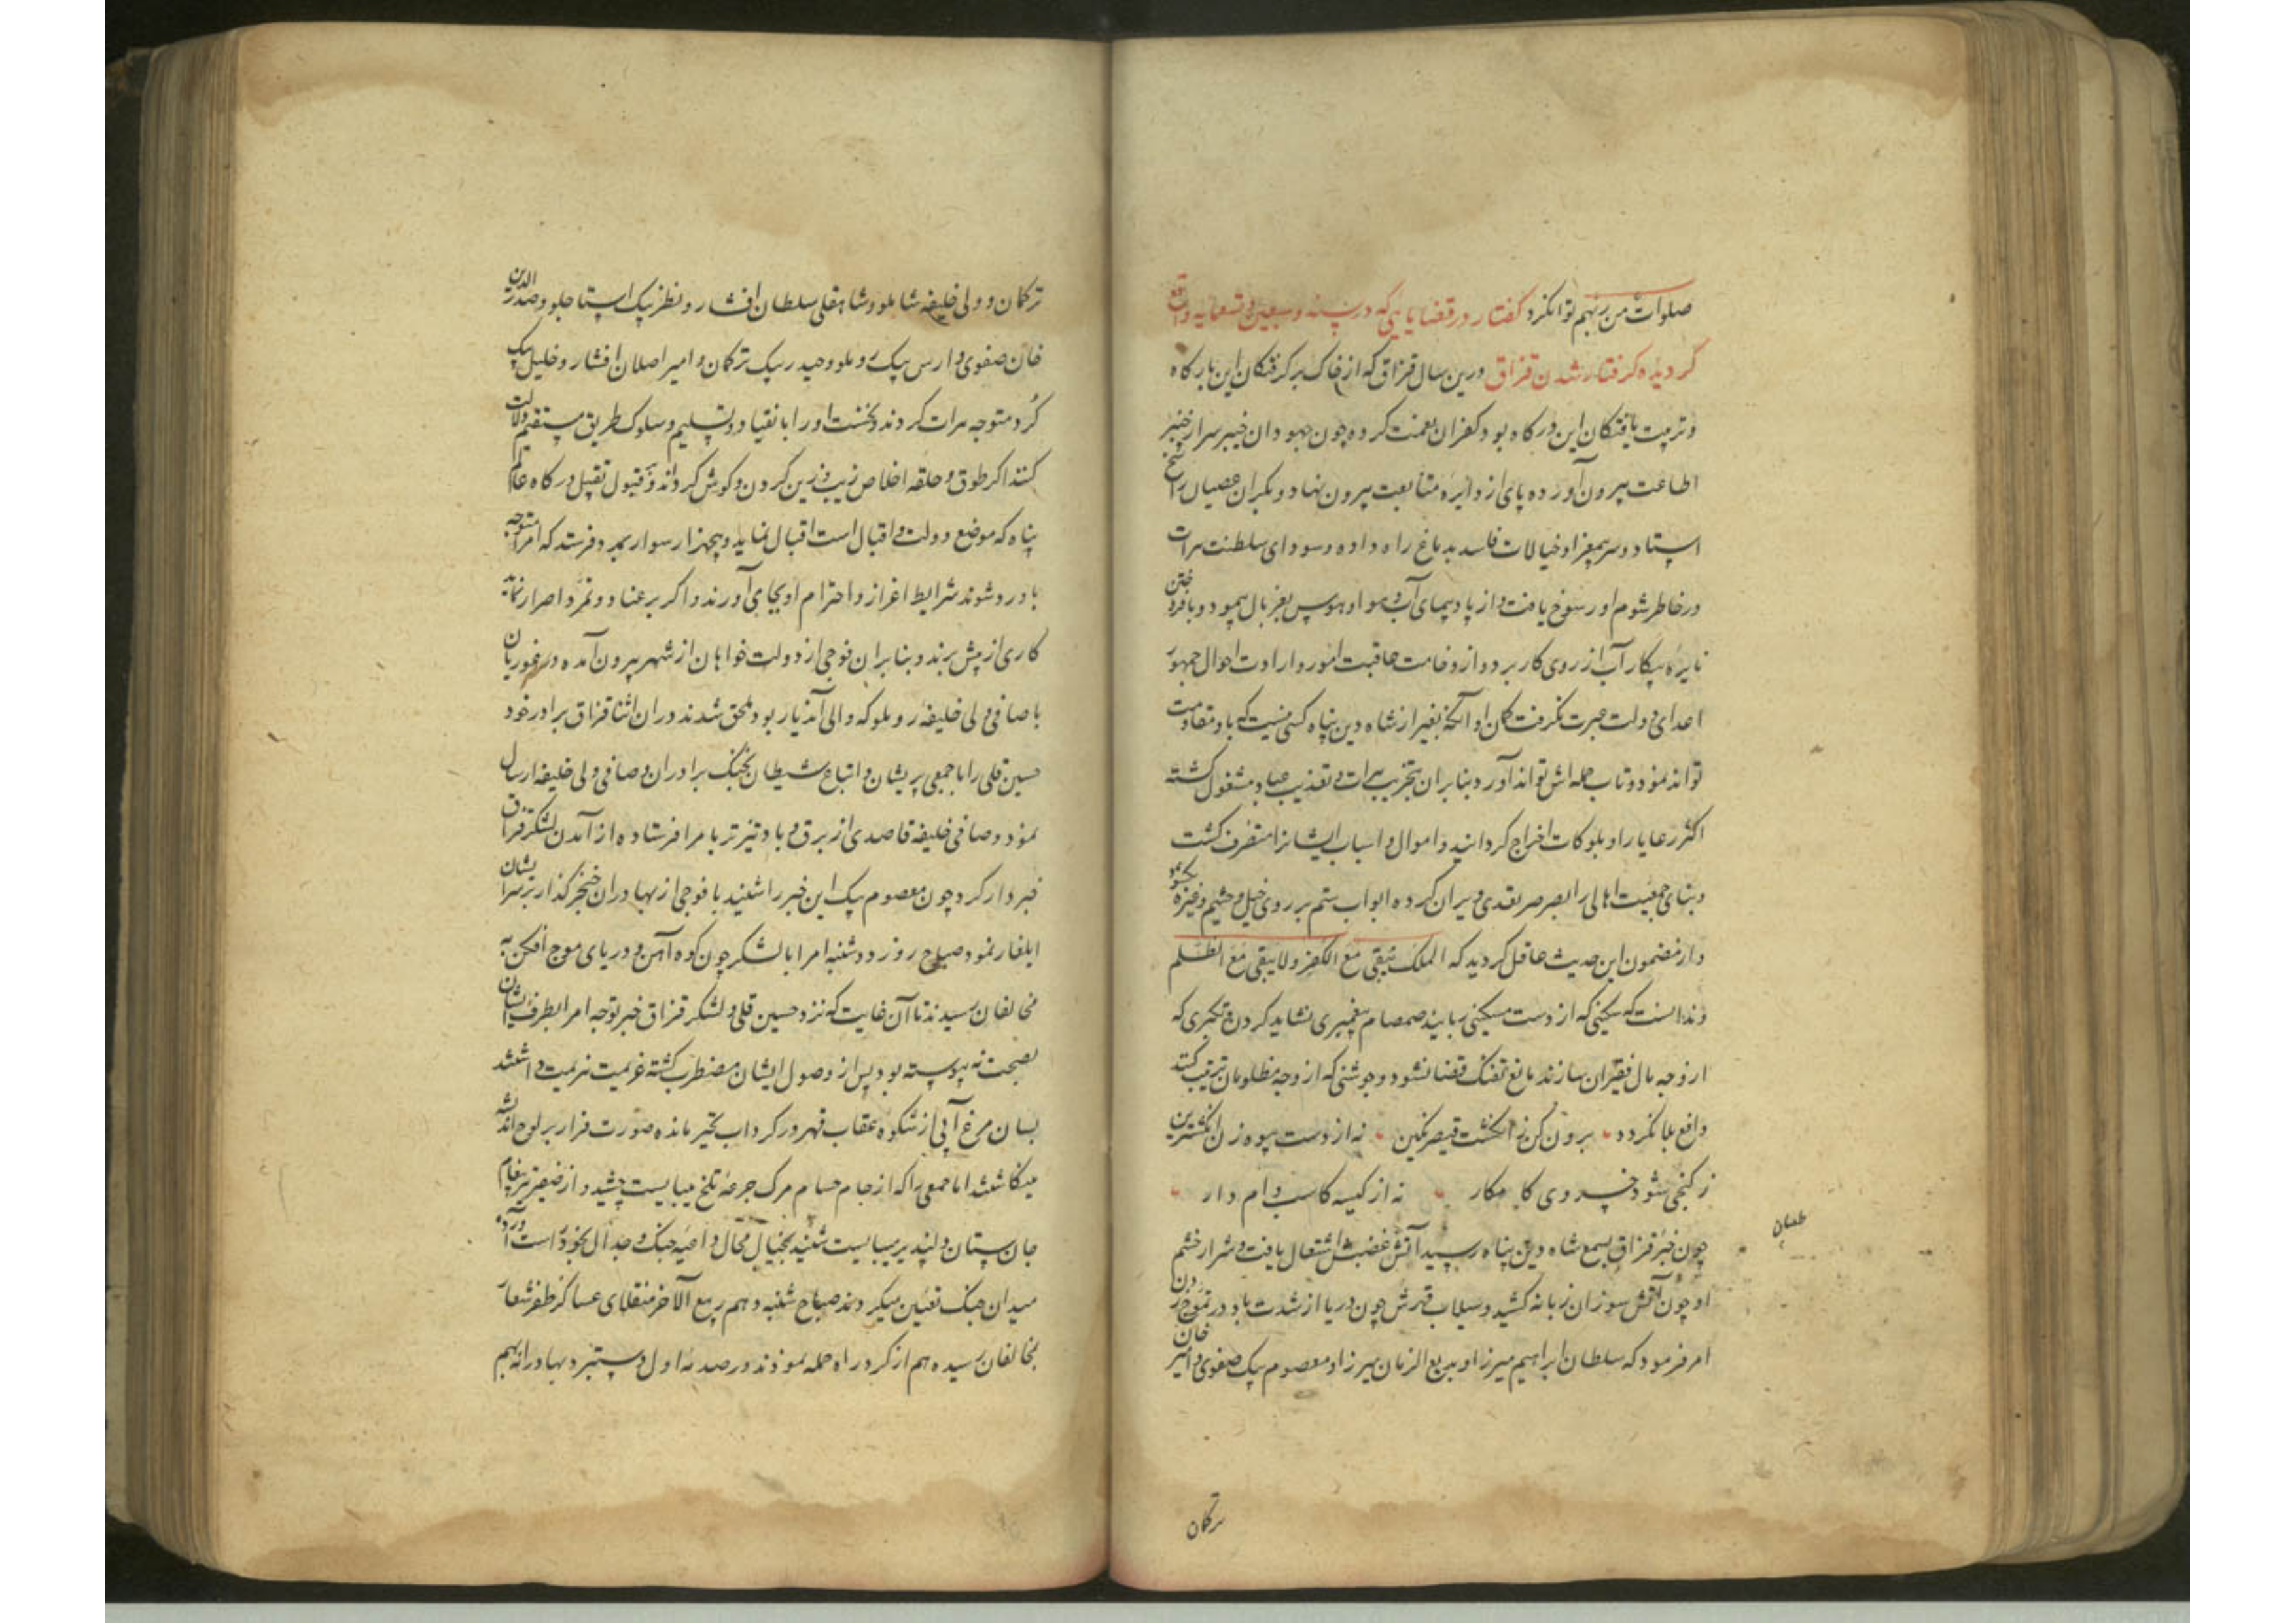 صلوات من ربهم توانکرد کفتار در قضایایی که در سنه و سبعین و تسعمایه واقع
کردیده کرفتار شدن قزاق درین سال قزاق که از خاک برکرفتکان این بارکاه
و تربیت یافتکان این درکاه بود کفران نعمت کرده چون جهودان خیبر سر از خنبر
اطاعت بیرون آورده پای از دایره متابعت بیرون نهاد و بکران عصیان راسخ
ایستاد و سر بیمغز او خیالات فاسد بدماغ راه داده و سودای سلطنت هرات
در خاطر شوم او رسوخ یافت و از بادپیمای آب و هوا و هوس بغربال پیمود و بافروختن
نایره پیکار آب از روی کار برد و از وخامت عاقبت امور و ارادت احوال جمهور
اعدای دولت عبرت نکرفت کمان او آنکه بغیر از شاه دین پناه کسی نیست که با او مقاومت
تواند نمود و تاب حمله اش تواند آورد بنابران بتخریب هرات و تعذیب عباد مشغول کشته
اکثر رعایا را و بلوکات اخراج کردانید و اموال و اسباب ایشانرا متصرف کشت
و بنای جمعیت اهالی را بصرصر تعدی ویران کرده ابواب ستم بر روی خیل و حشم و غیره بکشود
و از مضمون این حدیث غافل کردید که الملک یبقی مع الکفر ولا یبقی مع الظلم
و ندانست که سکینی که از دست مسکینی ربایند صمصام پیغمبری نشاید کردن و تکبری که
از وجه مال فقیران سازند مانع تفنک قضا نشود و جوشنی که از وجه مظلومان ترتیب کنند
دافع بلا نکردد برون کن ز انکشت قیصر نکین نه از دست بیوه زن انکشترین
ز کنجی شود خسروی کامکار نه از کیسه کاسب وام دار
چون خبر قزاق بسمع شاه دین پناه رسید آتش غضبش اشتعال یافت و شرار خشم
او چون آتش سوزان زبانه کشید و سیلاب قهرش چون دریا از شدت باد در تموج
امر فرمود که سلطان ابراهیم میرزا و بدیع الزمان میرزا و معصوم بیک صفوی و امیر خان
طغیان
ترکمان
ترکمان و ولی خلیفه شاملو و شاهقلی سلطان افشار و نظر بیک استاجلو و صدر الدین
خان صفوی و ارس بیک روملو و حیدر بیک ترکمان و امیر اصلان افشار و خلیل بیک
کرد متوجه هرات کردند و نخست او را بانقیاد و تسلیم و سلوک طریق مستقیم دلالت
کنند اکر طوق و حلقه اخلاص زیب و زین کردن و کوش کرداند و قبول تقبیل درکاه عالم
پناه که موضع دولت و اقبال است اقبال نماید و پنجهزار سوار بمرد فرستد که امرا متوجه
باورد شوند شرایط اعزاز و احترام او بجای آورند و اکر بر عناد و تمرد اصرار نماید
کاری از پیش برند و بنابران فوجی از دولت خواهان از شهر بیرون آمده در غوریان
با صافی ولی خلیفه روملو که والی آندیار بود ملحق شدند دران اثنا قزاق برادر خود
حسین قلی را با جمعی پریشان و اتباع شیطان بجنک برادران و صافی ولی خلیفه ارسال
نمود و صافی خلیفه قاصدی از برق و باد تیزتر بامرا فرستاده از آمدن لشکر قزاق
خبردار کرد چون معصوم بیک این خبر را شنید با فوجی از بهادران خنجرکذار بر سر ایشان
ایلغار نمود صباح روز دوشنبه امرا با لشکر چون کوه آهن و دریای موج افکن به
مخالفان رسیدند تا آن غایت که نزد حسین قلی و لشکر قزاق خبر توجه امرا بطرف ایشان
بصحت نه پیوسته بود پس از وصول ایشان مضطرب کشته عزیمت هزیمت داشتند
بسان مرغ آبی از شکوه عقاب قهر در کرداب تحیر مانده صورت فرار بر لوح اندیشه
مینکاشتند اما جمعی را که از جام حسام مرک جرعه تلخ میبایست چشید و از صفیر تیر پیغام
جان ستان دلپذیر میبایست شنید بخیال محال داعیه جنک و جدال بخود راست آورده
میدان جنک تعیین میکردند صباح شنبه دهم ربیع الآخر منقلای عساکر ظفر شعار
بمخالفان رسیده هم از کرد راه حمله نمودند در صدمه اول دستبرد بهادرانه بهم